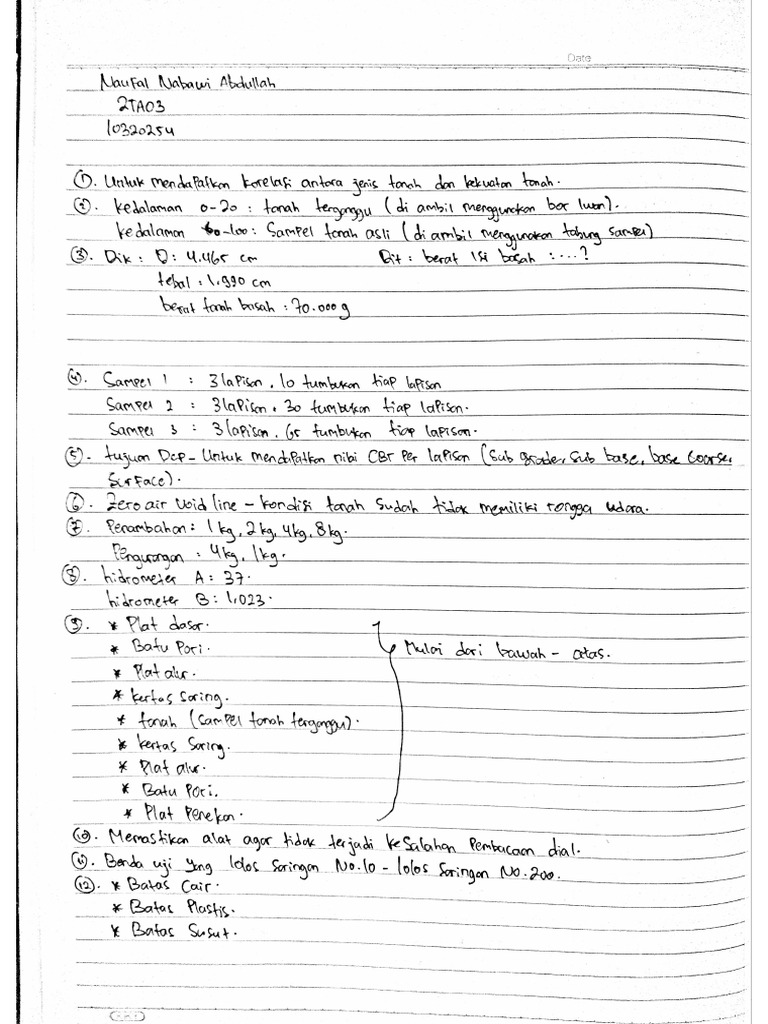 Date
Naufal Nabawi Abdullah
2TA03
10320254
①. Untuk mendapatkan korelasi antara jenis tanah dan kekuatan tanah.
②. Kedalaman 0-20 : tanah terganggu (di ambil menggunakan bor iwan).
kedalaman 60-100: Sampel tanah asli (di ambil menggunakan tabung sampel)
③. Dik : D: 4.465 cm Dit : berat isi basah : ....?
tebal : 1.990 cm
berat tanah basah : 70.000 g
④. Sampel 1 : 3 lapisan, 10 tumbukan tiap lapisan
Sampel 2 : 3 lapisan, 30 tumbukan tiap lapisan.
Sampel 3 : 3 lapisan, 65 tumbukan tiap lapisan.
⑤. tujuan Dcp - Untuk mendapatkan nilai CBR Per lapisan (Sub grade, Sub base, base Coarse,
Surface).
⑥. Zero air Void line - kondisi tanah Sudah tidak memiliki rongga udara.
⑦. Penambahan : 1 kg, 2 kg, 4 kg, 8 kg.
Pengurangan : 4 kg, 1 kg.
⑧. hidrometer A : 37.
hidrometer B : 1,023.
⑨. * Plat dasar.
* Batu Pori. Mulai dari bawah - atas.
* Plat alur.
* kertas Saring.
* tanah (Sampel tanah terganggu).
* kertas Saring.
* Plat alur.
* Batu Pori.
* Plat Penekan.
⑩. Memastikan alat agar tidak terjadi keSalahan Pembacaan dial.
⑪. Benda uji yang lolos Saringan No.10 - lolos Saringan No.200.
⑫. * Batas Cair.
* Batas Plastis.
* Batas Susut.